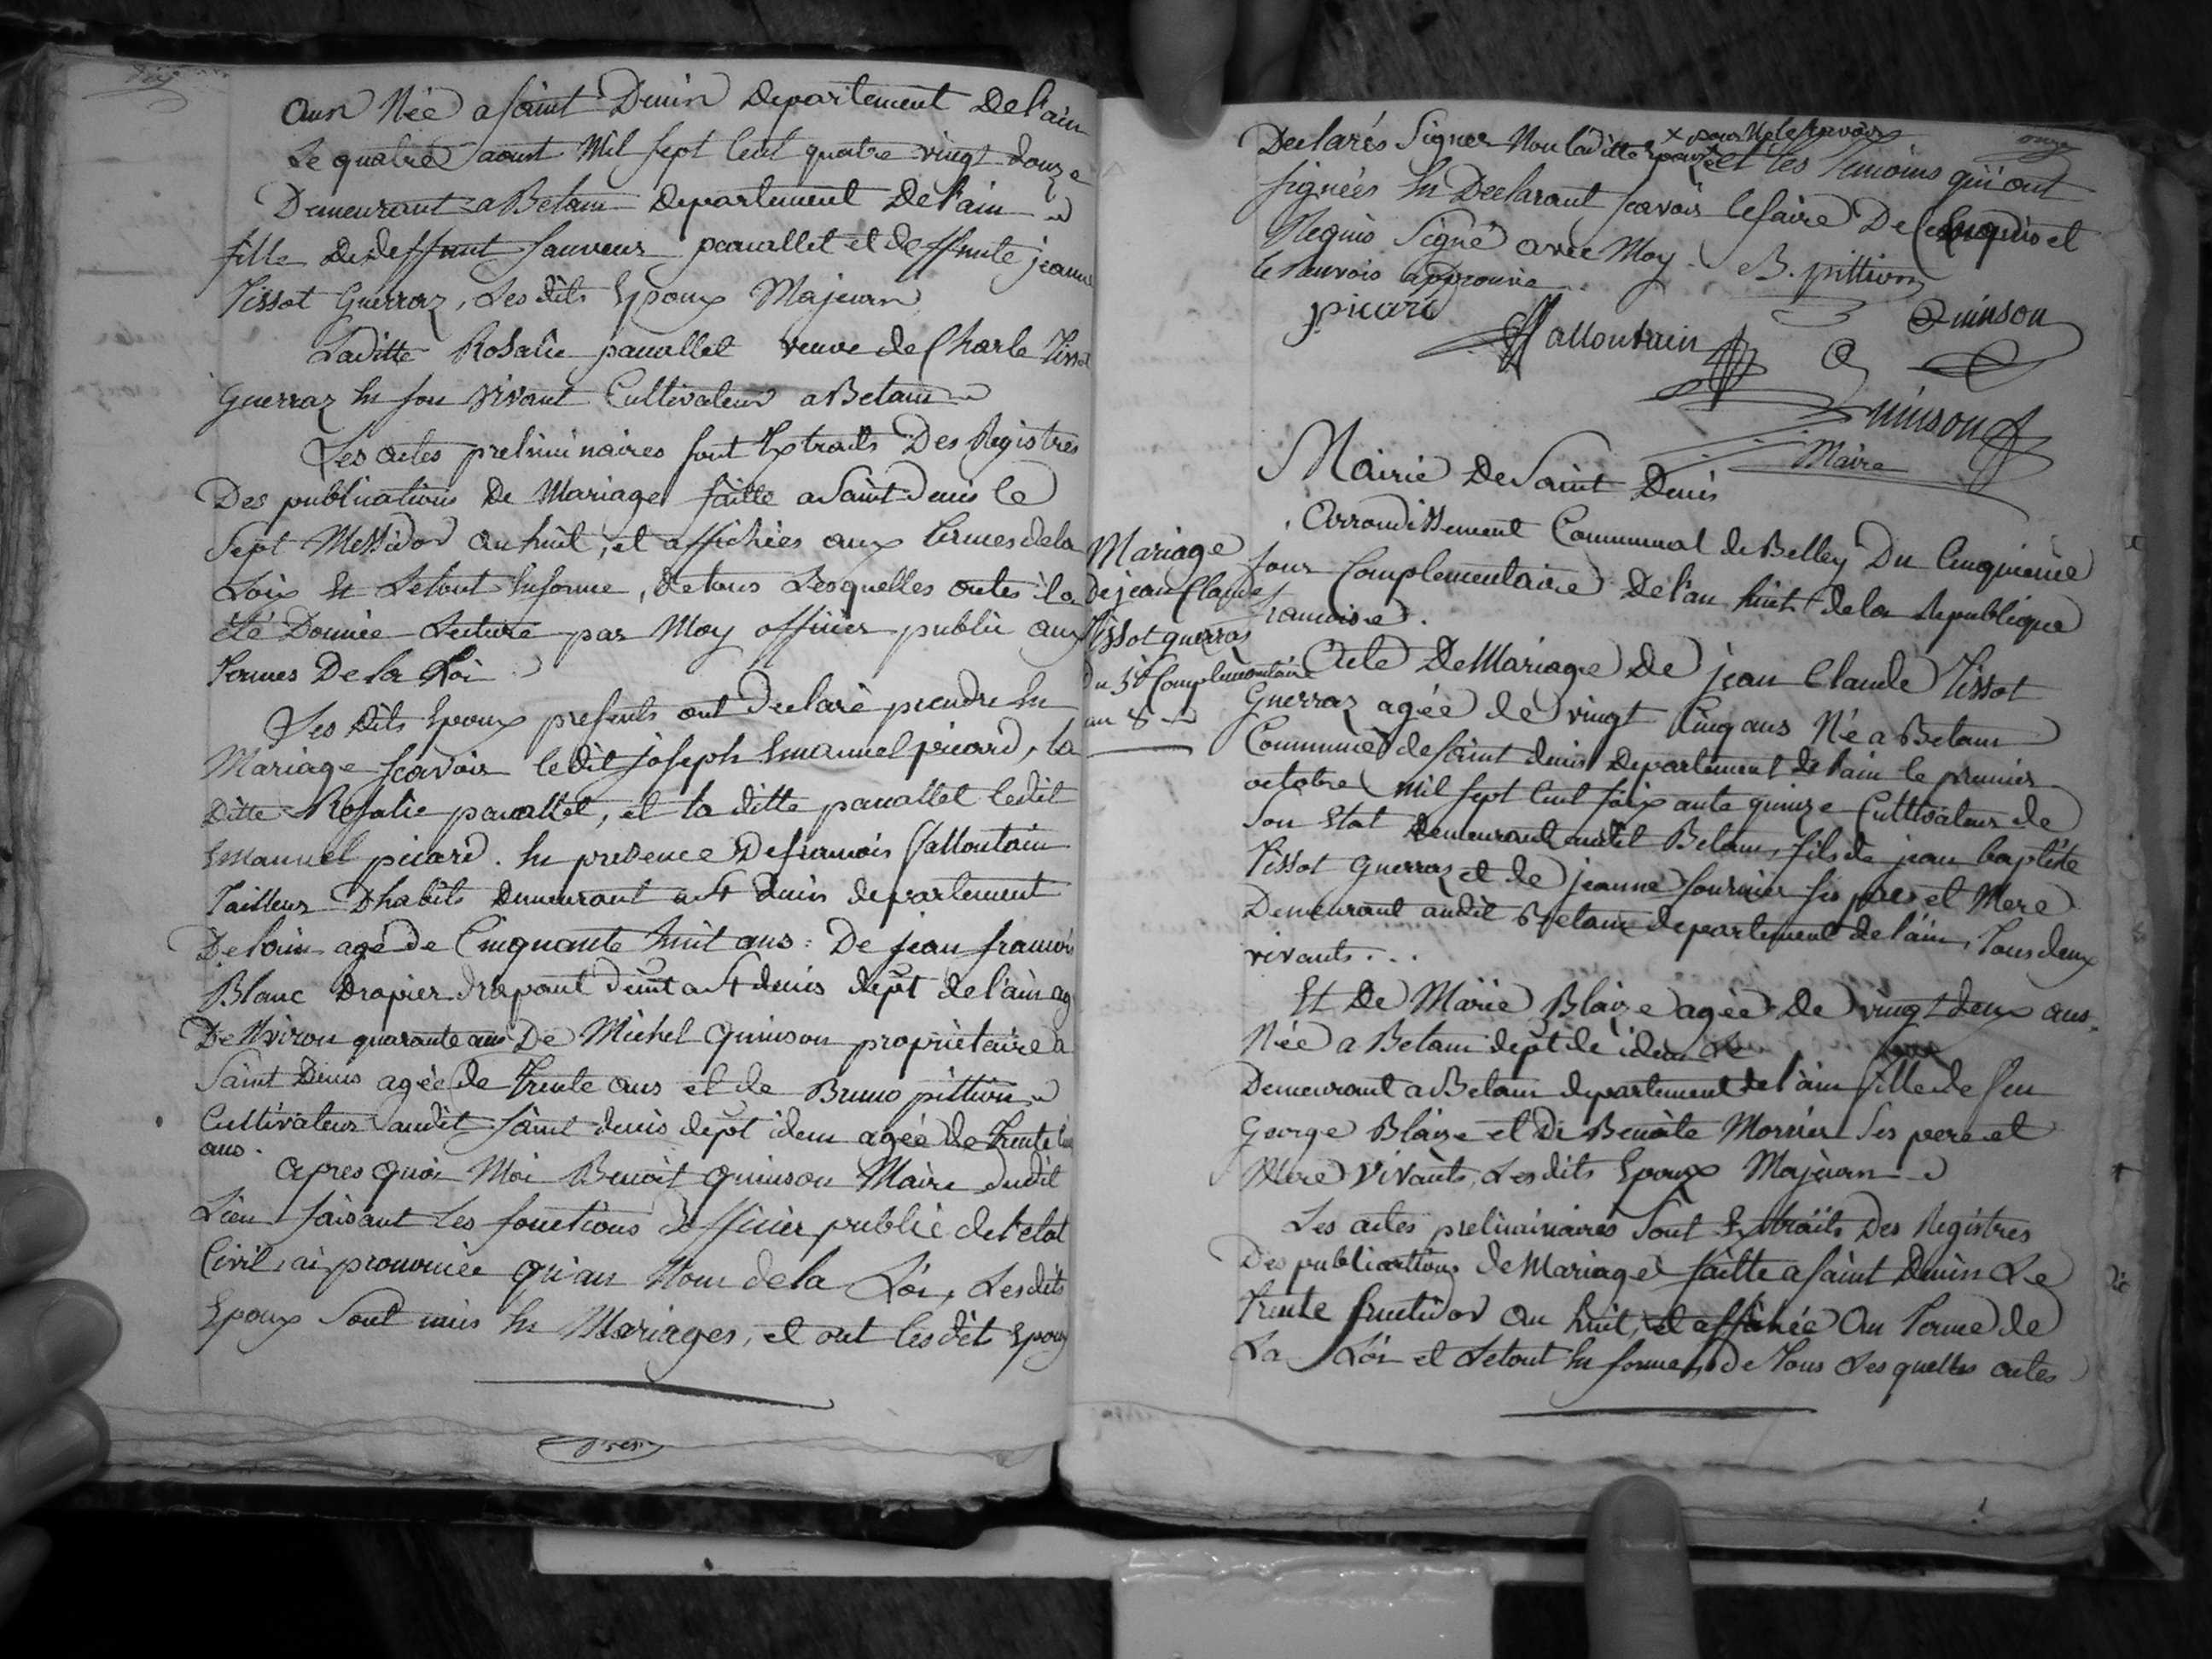 dix
Ans Née a saint Denin Departement De l'ain
Le quatre aoust Mil sept Cent quatre vingt douze
Demeurant a Betam Departement De l'ain
fille de deffunt sauveur pauallet et deffunte jeanne
Tissot Guerraz, Les dits Epoux Majeurn
Laditte Rosalie pauallet veuve de Charle Tissot
Guerraz En son vivant Cultivateur a Betam
Les actes preliminaires sont Extraits Des Registres
Des publications De Mariage faitte a Saint Denis le
Sept Messidor an huit, et affichées aux termes de la
Loix Et Le tout En forme, de tous Lesquelles actes il a
été Donnée Lecture par Moy officier public aux
Termes De la Loi
Les Dits Epoux presents ont Declaré prendre En
Mariage scavoir ledit joseph Emanuel picard, la
Ditte Rosalie pauallet, et la ditte pauallet ledit
Emanuel picard. En presence De francois Vallontain
Tailleur D'habits Demeurant a St Denis departement
De l'ain agé de Cinquante huit ans: De jean francois
Blanc Drapier drapant demt a St denis dept de l'ain ag
D'Environ quarante ans De Michel Quinson proprietaire a
Saint Denis agée de Trente ans et de Bruno pittion
Cultivateur audit saint denis dept idem agée de Trente
ans.
apres quoi Moi Benoit Quinson Maire dudit
Lieu faisant les fonctions d'officier public de l'etat
Civil, ai prononcée qu'au Nom de la Loi, Les dits
Epoux Sont unis En Mariages, et ont les dits Epoux
onze
Declarés Signer Non laditte Epouse x pour Ne le scavoir
et les Temoins qui ont
signées En Declarant scavoir le faire De ce Enquis et
Requis Signé avec Moy. B. pittion
approuvé
picard
Vallontain
Quinson
Quinson
Maire
Mairie De Saint Denis
Arrondissement Communal de Belley Du Cinquieme
Jour Complementaire De l'an huit de la Republique
francoise.
Mariage
de jean Claude
Tissot guerraz
du 5e Complementaire
an 8
Acte De Mariage De jean Claude Tissot
Guerraz agée de vingt Cinq ans Né a Betam
Commune de saint denis Departement de l'ain le premier
octobre Mil sept Cent soixante quinze Cultivateur de
Son Etat Demeurant audit Betam, fils de jean baptiste
Tissot Guerraz et de jeanne fournier ses pere et Mere
Demeurant audit Betam departement de l'ain, Tous deux
vivants...
Et De Marie Blaize agée De vingt deux ans.
Née a Betam dept de idem
Demeurant a Betam departement de l'ain fille de feu
George Blaize et De Benoite Mornier Ses pere et
Mere Vivants, Les dits Epoux Majeurn
Les actes preliminaires Sont Extraits Des Registres
Des publications de Mariage faitte a saint Denin Le
Trente fructidor an huit, et affichée Au Terme de
La Loi et Le tout En forme, de Tous Lesquelles actes